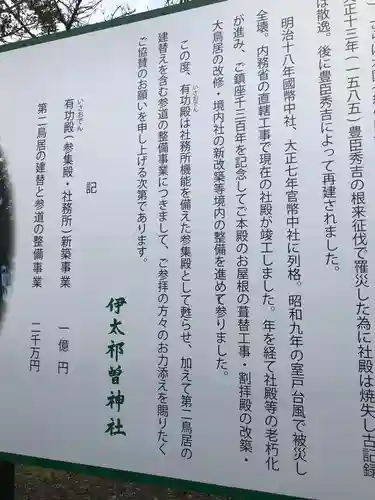 大正十三年（一五八五）豊臣秀吉の根来征伐で罹災した為に社殿は焼失し古記録
は散逸。後に豊臣秀吉によって再建されました。
明治十八年國幣中社、大正七年官幣中社に列格。昭和九年の室戸台風で被災し
全壊。内務省の直轄工事で現在の社殿が竣工しました。年を経て社殿等の老朽化
が進み、ご鎮座千三百年を記念してご本殿のお屋根の葺替工事・割拝殿の改築・
大鳥居の改修・境内社の新改築等境内の整備を進めて参りました。
この度、有功殿は社務所機能を備えた参集殿として甦らせ、加えて第二鳥居の
いさおでん
建替えを含む参道の整備事業につきまして、ご参拝の方々のお力添えを賜りたく
ご協賛のお願いを申し上げる次第であります。
記
いさおでん
有功殿（参集殿・社務所）新築事業　一億円
第二鳥居の建替と参道の整備事業　二千万円
伊太祁曽神社